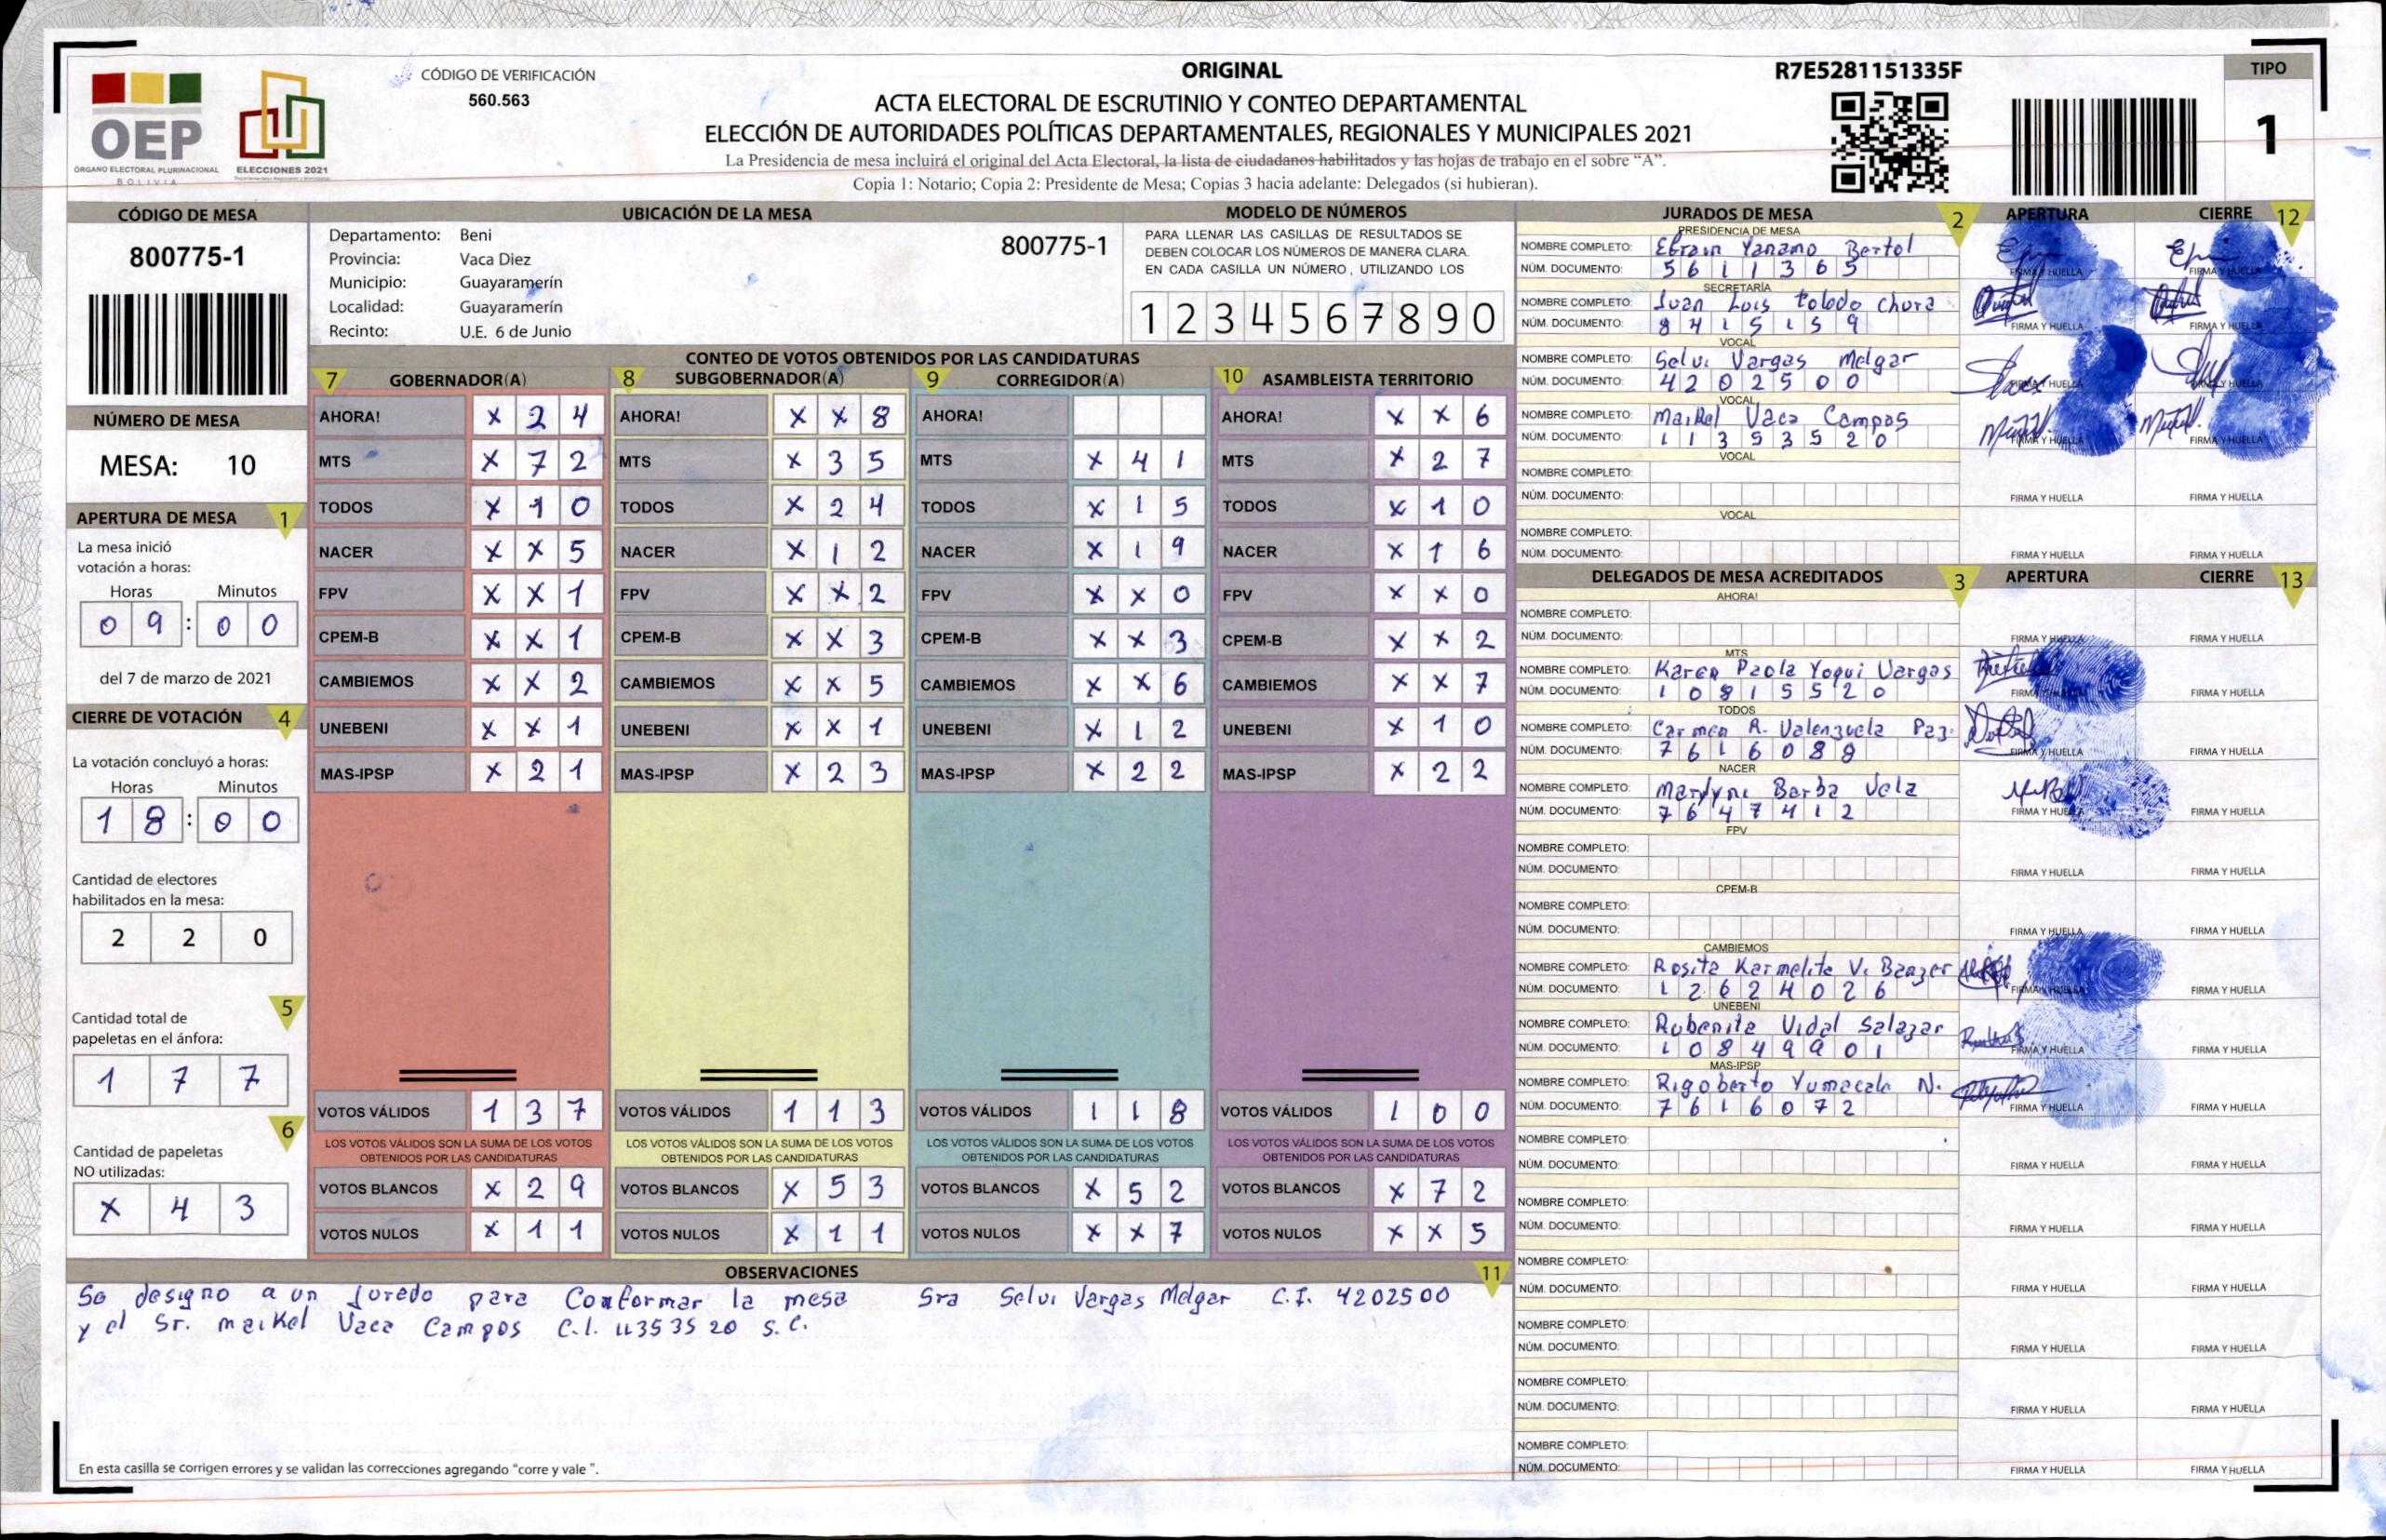 CÓDIGO DE VERIFICACIÓN
560.563
OEP
ÓRGANO ELECTORAL PLURINACIONAL
BOLIVIA
ELECCIONES 2021
ORIGINAL
ACTA ELECTORAL DE ESCRUTINIO Y CONTEO DEPARTAMENTAL
ELECCIÓN DE AUTORIDADES POLÍTICAS DEPARTAMENTALES, REGIONALES Y MUNICIPALES 2021
La Presidencia de mesa incluirá el original del Acta Electoral, la lista de ciudadanos habilitados y las hojas de trabajo en el sobre “A”.
Copia 1: Notario; Copia 2: Presidente de Mesa; Copias 3 hacia adelante: Delegados (si hubieran).
R7E5281151335F
TIPO
1
CÓDIGO DE MESA
800775-1
NÚMERO DE MESA
MESA: 10
APERTURA DE MESA 1
La mesa inició
votación a horas:
Horas Minutos
0 9 : 0 0
del 7 de marzo de 2021
CIERRE DE VOTACIÓN 4
La votación concluyó a horas:
Horas Minutos
1 8 : 0 0
Cantidad de electores
habilitados en la mesa:
2 2 0
5
Cantidad total de
papeletas en el ánfora:
1 7 7
6
Cantidad de papeletas
NO utilizadas:
X 4 3
UBICACIÓN DE LA MESA
Departamento: Beni
Provincia: Vaca Diez
Municipio: Guayaramerín
Localidad: Guayaramerín
Recinto: U.E. 6 de Junio
800775-1
MODELO DE NÚMEROS
PARA LLENAR LAS CASILLAS DE RESULTADOS SE
DEBEN COLOCAR LOS NÚMEROS DE MANERA CLARA.
EN CADA CASILLA UN NÚMERO, UTILIZANDO LOS
1 2 3 4 5 6 7 8 9 0
CONTEO DE VOTOS OBTENIDOS POR LAS CANDIDATURAS
7 GOBERNADOR(A)
AHORA! X 2 4
MTS X 7 2
TODOS X 1 0
NACER X X 5
FPV X X 1
CPEM-B X X 1
CAMBIEMOS X X 2
UNEBENI X X 1
MAS-IPSP X 2 1
VOTOS VÁLIDOS 1 3 7
LOS VOTOS VÁLIDOS SON LA SUMA DE LOS VOTOS
OBTENIDOS POR LAS CANDIDATURAS
VOTOS BLANCOS X 2 9
VOTOS NULOS X 1 1
8 SUBGOBERNADOR(A)
AHORA! X X 8
MTS X 3 5
TODOS X 2 4
NACER X 1 2
FPV X X 2
CPEM-B X X 3
CAMBIEMOS X X 5
UNEBENI X X 1
MAS-IPSP X 2 3
VOTOS VÁLIDOS 1 1 3
LOS VOTOS VÁLIDOS SON LA SUMA DE LOS VOTOS
OBTENIDOS POR LAS CANDIDATURAS
VOTOS BLANCOS X 5 3
VOTOS NULOS X 1 1
9 CORREGIDOR(A)
AHORA!
MTS X 4 1
TODOS X 1 5
NACER X 1 9
FPV X X 0
CPEM-B X X 3
CAMBIEMOS X X 6
UNEBENI X 1 2
MAS-IPSP X 2 2
VOTOS VÁLIDOS 1 1 8
LOS VOTOS VÁLIDOS SON LA SUMA DE LOS VOTOS
OBTENIDOS POR LAS CANDIDATURAS
VOTOS BLANCOS X 5 2
VOTOS NULOS X X 7
10 ASAMBLEISTA TERRITORIO
AHORA! X X 6
MTS X 2 7
TODOS X 1 0
NACER X 1 6
FPV X X 0
CPEM-B X X 2
CAMBIEMOS X X 7
UNEBENI X 1 0
MAS-IPSP X 2 2
VOTOS VÁLIDOS 1 0 0
LOS VOTOS VÁLIDOS SON LA SUMA DE LOS VOTOS
OBTENIDOS POR LAS CANDIDATURAS
VOTOS BLANCOS X 7 2
VOTOS NULOS X X 5
OBSERVACIONES 11
Se designo a un Juredo para Conformar la mesa Sra Selvi Vargas Melgar C.I. 4202500
y el Sr. maikel Vaca Campos C.I. 11353520 S.C.
En esta casilla se corrigen errores y se validan las correcciones agregando “corre y vale ”.
JURADOS DE MESA 2 APERTURA CIERRE 12
PRESIDENCIA DE MESA
NOMBRE COMPLETO: Efrain Yanamo Bertol
NÚM. DOCUMENTO: 5 6 1 1 3 6 5
FIRMA Y HUELLA FIRMA Y HUELLA
SECRETARÍA
NOMBRE COMPLETO: Juan Luis toledo Chura
NÚM. DOCUMENTO: 8 4 1 5 1 5 9
FIRMA Y HUELLA FIRMA Y HUELLA
VOCAL
NOMBRE COMPLETO: Selvi Vargas Melgar
NÚM. DOCUMENTO: 4 2 0 2 5 0 0
FIRMA Y HUELLA FIRMA Y HUELLA
VOCAL
NOMBRE COMPLETO: Maikel Vaca Campos
NÚM. DOCUMENTO: 1 1 3 5 3 5 2 0
FIRMA Y HUELLA FIRMA Y HUELLA
VOCAL
NOMBRE COMPLETO:
NÚM. DOCUMENTO:
FIRMA Y HUELLA FIRMA Y HUELLA
VOCAL
NOMBRE COMPLETO:
NÚM. DOCUMENTO:
FIRMA Y HUELLA FIRMA Y HUELLA
DELEGADOS DE MESA ACREDITADOS 3 APERTURA CIERRE 13
AHORA!
NOMBRE COMPLETO:
NÚM. DOCUMENTO:
FIRMA Y HUELLA FIRMA Y HUELLA
MTS
NOMBRE COMPLETO: Karen Paola Yoqui Vargas
NÚM. DOCUMENTO: 1 0 8 1 5 5 2 0
FIRMA Y HUELLA FIRMA Y HUELLA
TODOS
NOMBRE COMPLETO: Carmen R. Valenzuela Paz.
NÚM. DOCUMENTO: 7 6 1 6 0 8 9
FIRMA Y HUELLA FIRMA Y HUELLA
NACER
NOMBRE COMPLETO: Barba Vela
NÚM. DOCUMENTO: 7 6 4 7 4 1 2
FIRMA Y HUELLA FIRMA Y HUELLA
FPV
NOMBRE COMPLETO:
NÚM. DOCUMENTO:
FIRMA Y HUELLA FIRMA Y HUELLA
CPEM-B
NOMBRE COMPLETO:
NÚM. DOCUMENTO:
FIRMA Y HUELLA FIRMA Y HUELLA
CAMBIEMOS
NOMBRE COMPLETO: Rosita Karmelite V. Banzer
NÚM. DOCUMENTO: 1 2 6 2 4 0 2 6
FIRMA Y HUELLA FIRMA Y HUELLA
UNEBENI
NOMBRE COMPLETO: Rubenita Vidal Salazar
NÚM. DOCUMENTO: 1 0 8 4 9 9 0 1
FIRMA Y HUELLA FIRMA Y HUELLA
MAS-IPSP
NOMBRE COMPLETO: Rigoberto Yumacale N.
NÚM. DOCUMENTO: 7 6 1 6 0 7 2
FIRMA Y HUELLA FIRMA Y HUELLA
NOMBRE COMPLETO:
NÚM. DOCUMENTO:
FIRMA Y HUELLA FIRMA Y HUELLA
NOMBRE COMPLETO:
NÚM. DOCUMENTO:
FIRMA Y HUELLA FIRMA Y HUELLA
NOMBRE COMPLETO:
NÚM. DOCUMENTO:
FIRMA Y HUELLA FIRMA Y HUELLA
NOMBRE COMPLETO:
NÚM. DOCUMENTO:
FIRMA Y HUELLA FIRMA Y HUELLA
NOMBRE COMPLETO:
NÚM. DOCUMENTO:
FIRMA Y HUELLA FIRMA Y HUELLA
NOMBRE COMPLETO:
NÚM. DOCUMENTO:
FIRMA Y HUELLA FIRMA Y HUELLA